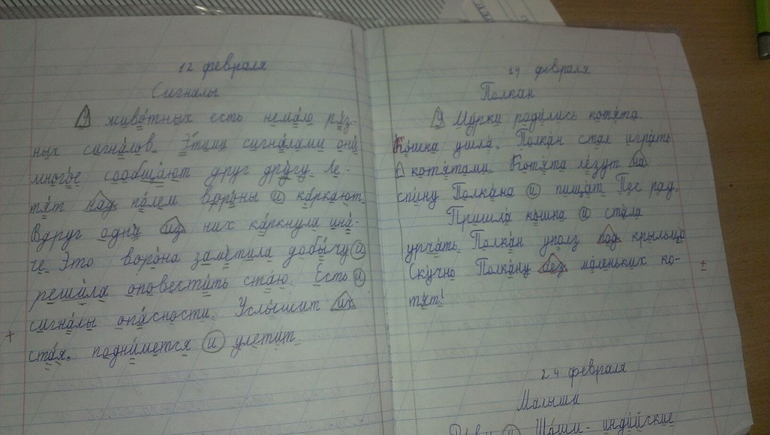 12 февраля
Сигналы
У животных есть немало раз-
ных сигналов. Этими сигналами они
многое сообщают друг другу. Ле-
тят над палем вороны и каркают.
Вдруг одна из них каркнула ина-
че. Это ворона заметила добычу и
решила оповестить стаю. Есть и
сигналы опасности. Услышит их
стая, поднимется и улетит.
24 февраля
Полкан
У Мурки родились котята.
Кошка ушла. Полкан стал играть
с котятами. Котята лезут на
спину Полкана и пищат. Пёс рад.
Пришла кошка и стала
урчать. Полкан уполз под крыльцо
Скучно Полкану без маленьких ко-
тят!
24 февраля
Малыши
и индийские